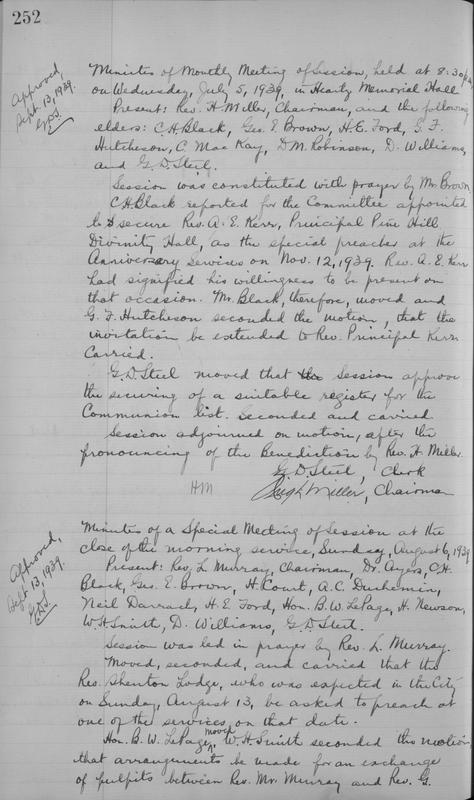 252
Approved,
Sept. 13, 1939.
G.D.S.
Minutes of Monthly Meeting of Session, held at 8:30 p.m.
on Wednesday, July 5, 1939, in Heartz Memorial Hall.
Present: Rev. H. Miller, Chairman, and the following
elders: C.H. Black, Geo. E. Brown, H.E. Ford, G. F.
Hutcheson, C. MacKay, D.M. Robinson, D. Williams,
and G.D. Steel.
Session was constituted with prayer by Mr. Brown
C.H. Black reported for the Committee appointed
to secure Rev. A. E. Kerr, Principal Pine Hill
Divinity Hall, as the special preacher at the
Anniversary services on Nov. 12, 1939. Rev. A. E. Kerr
had signified his willingness to be present on
that occasion. Mr. Black, therefore, moved and
G. F. Hutcheson seconded the motion, that the
invitation be extended to Rev. Principal Kerr.
Carried.
G.D. Steel moved that the Session approve
the securing of a suitable register for the
Communion list. seconded and carried
Session adjourned on motion, after the
pronouncing of the Benediction by Rev. H. Miller.
G.D. Steel, Clerk
HM Hugh Miller, Chairman
Approved,
Sept 13, 1939.
G.D.S.
Minutes of a Special Meeting of Session at the
close of the morning service, Sunday, August 6, 1939
Present: Rev. L. Murray, Chairman, Dr. Ayers, C.H.
Black, Geo. E. Brown, H. Court, A.C. Duchemin,
Neil Darrach, H. E. Ford, Hon. B. W. LePage, H. Newson,
W.H. Smith, D. Williams, G.D. Steel.
Session was led in prayer by Rev. L. Murray.
Moved, seconded, and carried that the
Rev. Shenton Lodge, who was expected in the City
on Sunday, August 13, be asked to preach at
one of the services, on that date.
Hon. B. W. LePage moved, W.H. Smith seconded the motion,
that arrangements be made for an exchange
of pulpits between Rev. Mr. Murray and Rev. G.